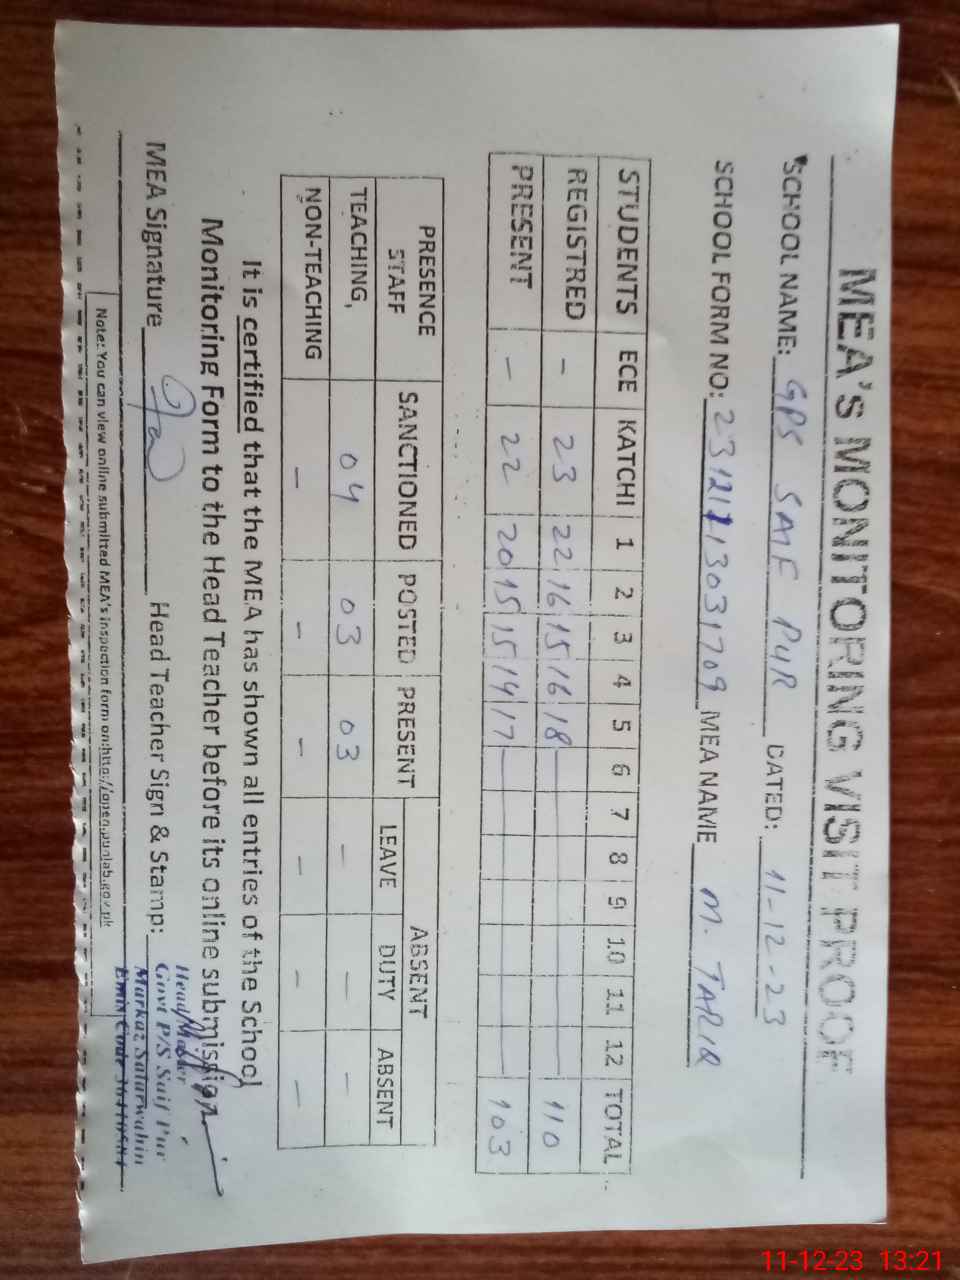 MEA's MONITORING VISIT PROOF
SCHOOL NAME: GPS SAIF PUR DATED: 11-12-23
SCHOOL FORM NO: 2312113031709 MEA NAME M. TARIQ
STUDENTS ECE KATCHI 1 2 3 4 5 6 7 8 9 10 11 12 TOTAL
REGISTRED - 23 22 16 15 16 18 110
PRESENT - 22 20 15 15 14 17 103
PRESENCE STAFF SANCTIONED POSTED PRESENT ABSENT
LEAVE DUTY ABSENT
TEACHING, 04 03 03 - - -
NON-TEACHING - - - - - -
It is certified that the MEA has shown all entries of the School
Monitoring Form to the Head Teacher before its online submission.
MEA Signature Head Teacher Sign & Stamp:
Head Master
Govt P/S Saif Pur
Markaz
Emis Code
Note: You can view online submitted MEA's inspection form on:http://open.punjab.gov.pk
11-12-23 13:21